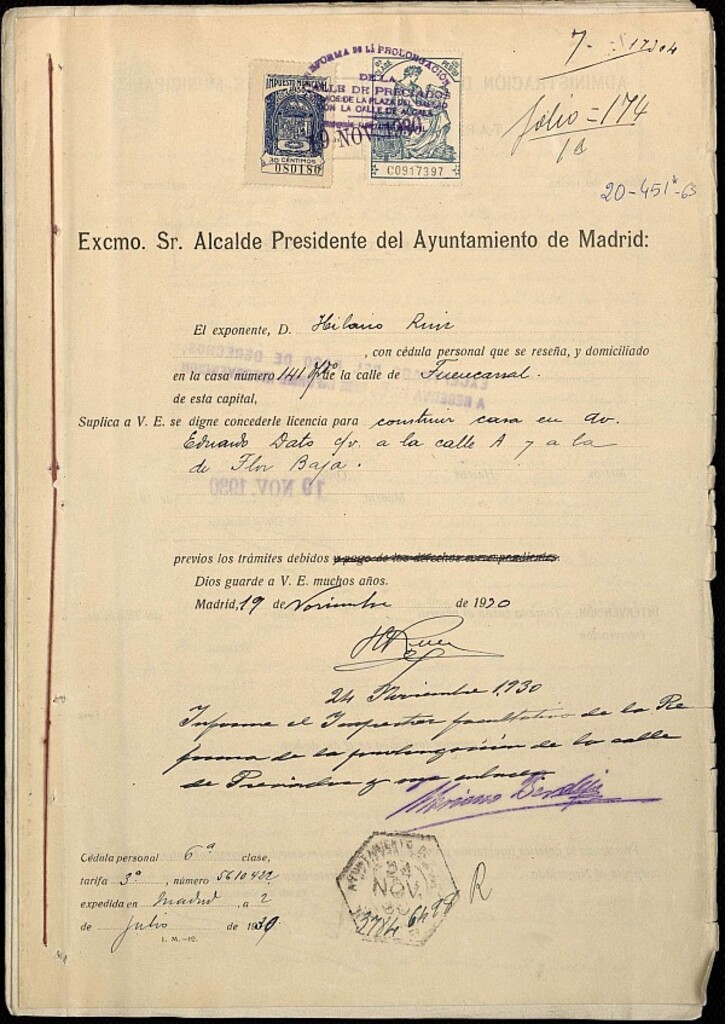 7-
Julio = 174
20-451*-63
IMPUESTO MUNICIPAL
30 CÉNTIMOS
080180
C0917397
REFORMA DE LA PROLONGACIÓN
DE LA
CALLE DE PRECIADOS
CON LA CALLE DE ALCALÁ
19 NOV. 1930
Excmo. Sr. Alcalde Presidente del Ayuntamiento de Madrid:
El exponente, D. Hilario Ruiz
, con cédula personal que se reseña, y domiciliado
en la casa número 141 de la calle de Fuencarral.
de esta capital,
Suplica a V. E. se digne concederle licencia para construir casa en av.
Eduardo Dato c/v. a la calle A y a la
de Flor Baja.
19 NOV. 1930
previos los trámites debidos y pago de los derechos correspondientes.
Dios guarde a V. E. muchos años.
Madrid, 19 de Noviembre de 1930
24 Noviembre 1930
Informe el Inspector facultativo de la Re
forma de la prolongación de la calle
de Preciados y sus enlaces
Cédula personal 6ª clase,
tarifa 3ª, número 5610422
expedida en Madrid, a 2
de julio de 1930
I. M.—12.
AYUNTAMIENTO DE
24
NOV.
R